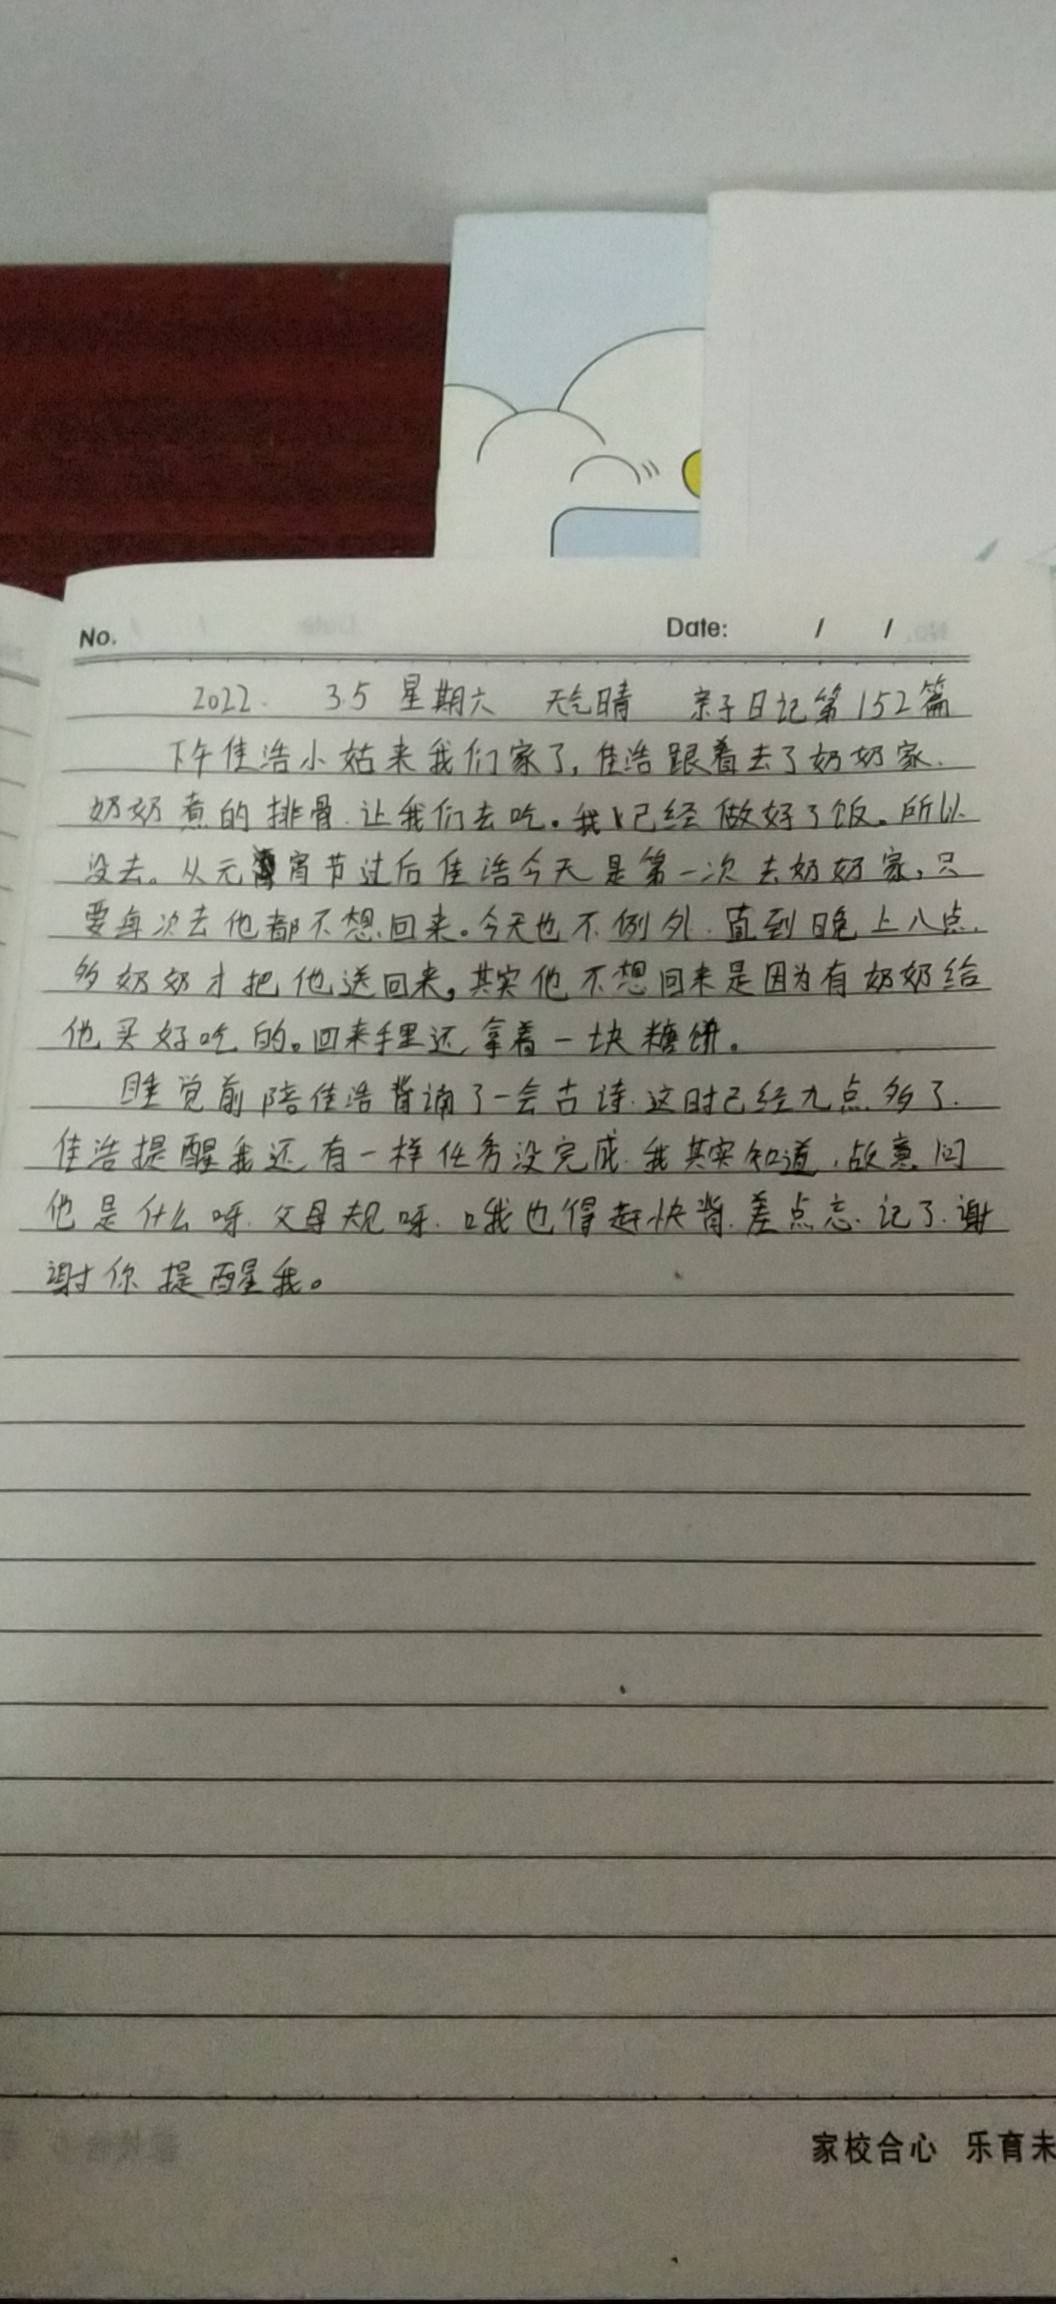 No. Date: / /
2022. 3.5 星期六 天气晴 亲子日记第152篇
下午佳浩小姑来我们家了,佳浩跟着去了奶奶家.
奶奶煮的排骨.让我们去吃。我已经做好了饭。所以
没去。从元宵节过后佳浩今天是第一次去奶奶家,只
要每次去他都不想回来。今天也不例外.直到晚上八点.
多奶奶才把他送回来,其实他不想回来是因为有奶奶给
他买好吃的。回来手里还拿着一块糖饼。
睡觉前陪佳浩背诵了一会古诗.这时已经九点多了.
佳浩提醒我还有一样任务没完成.我其实知道,故意问
他是什么呀.父母规呀.哦我也得赶快背.差点忘记了.谢
谢你提醒我。
家校合心 乐育未